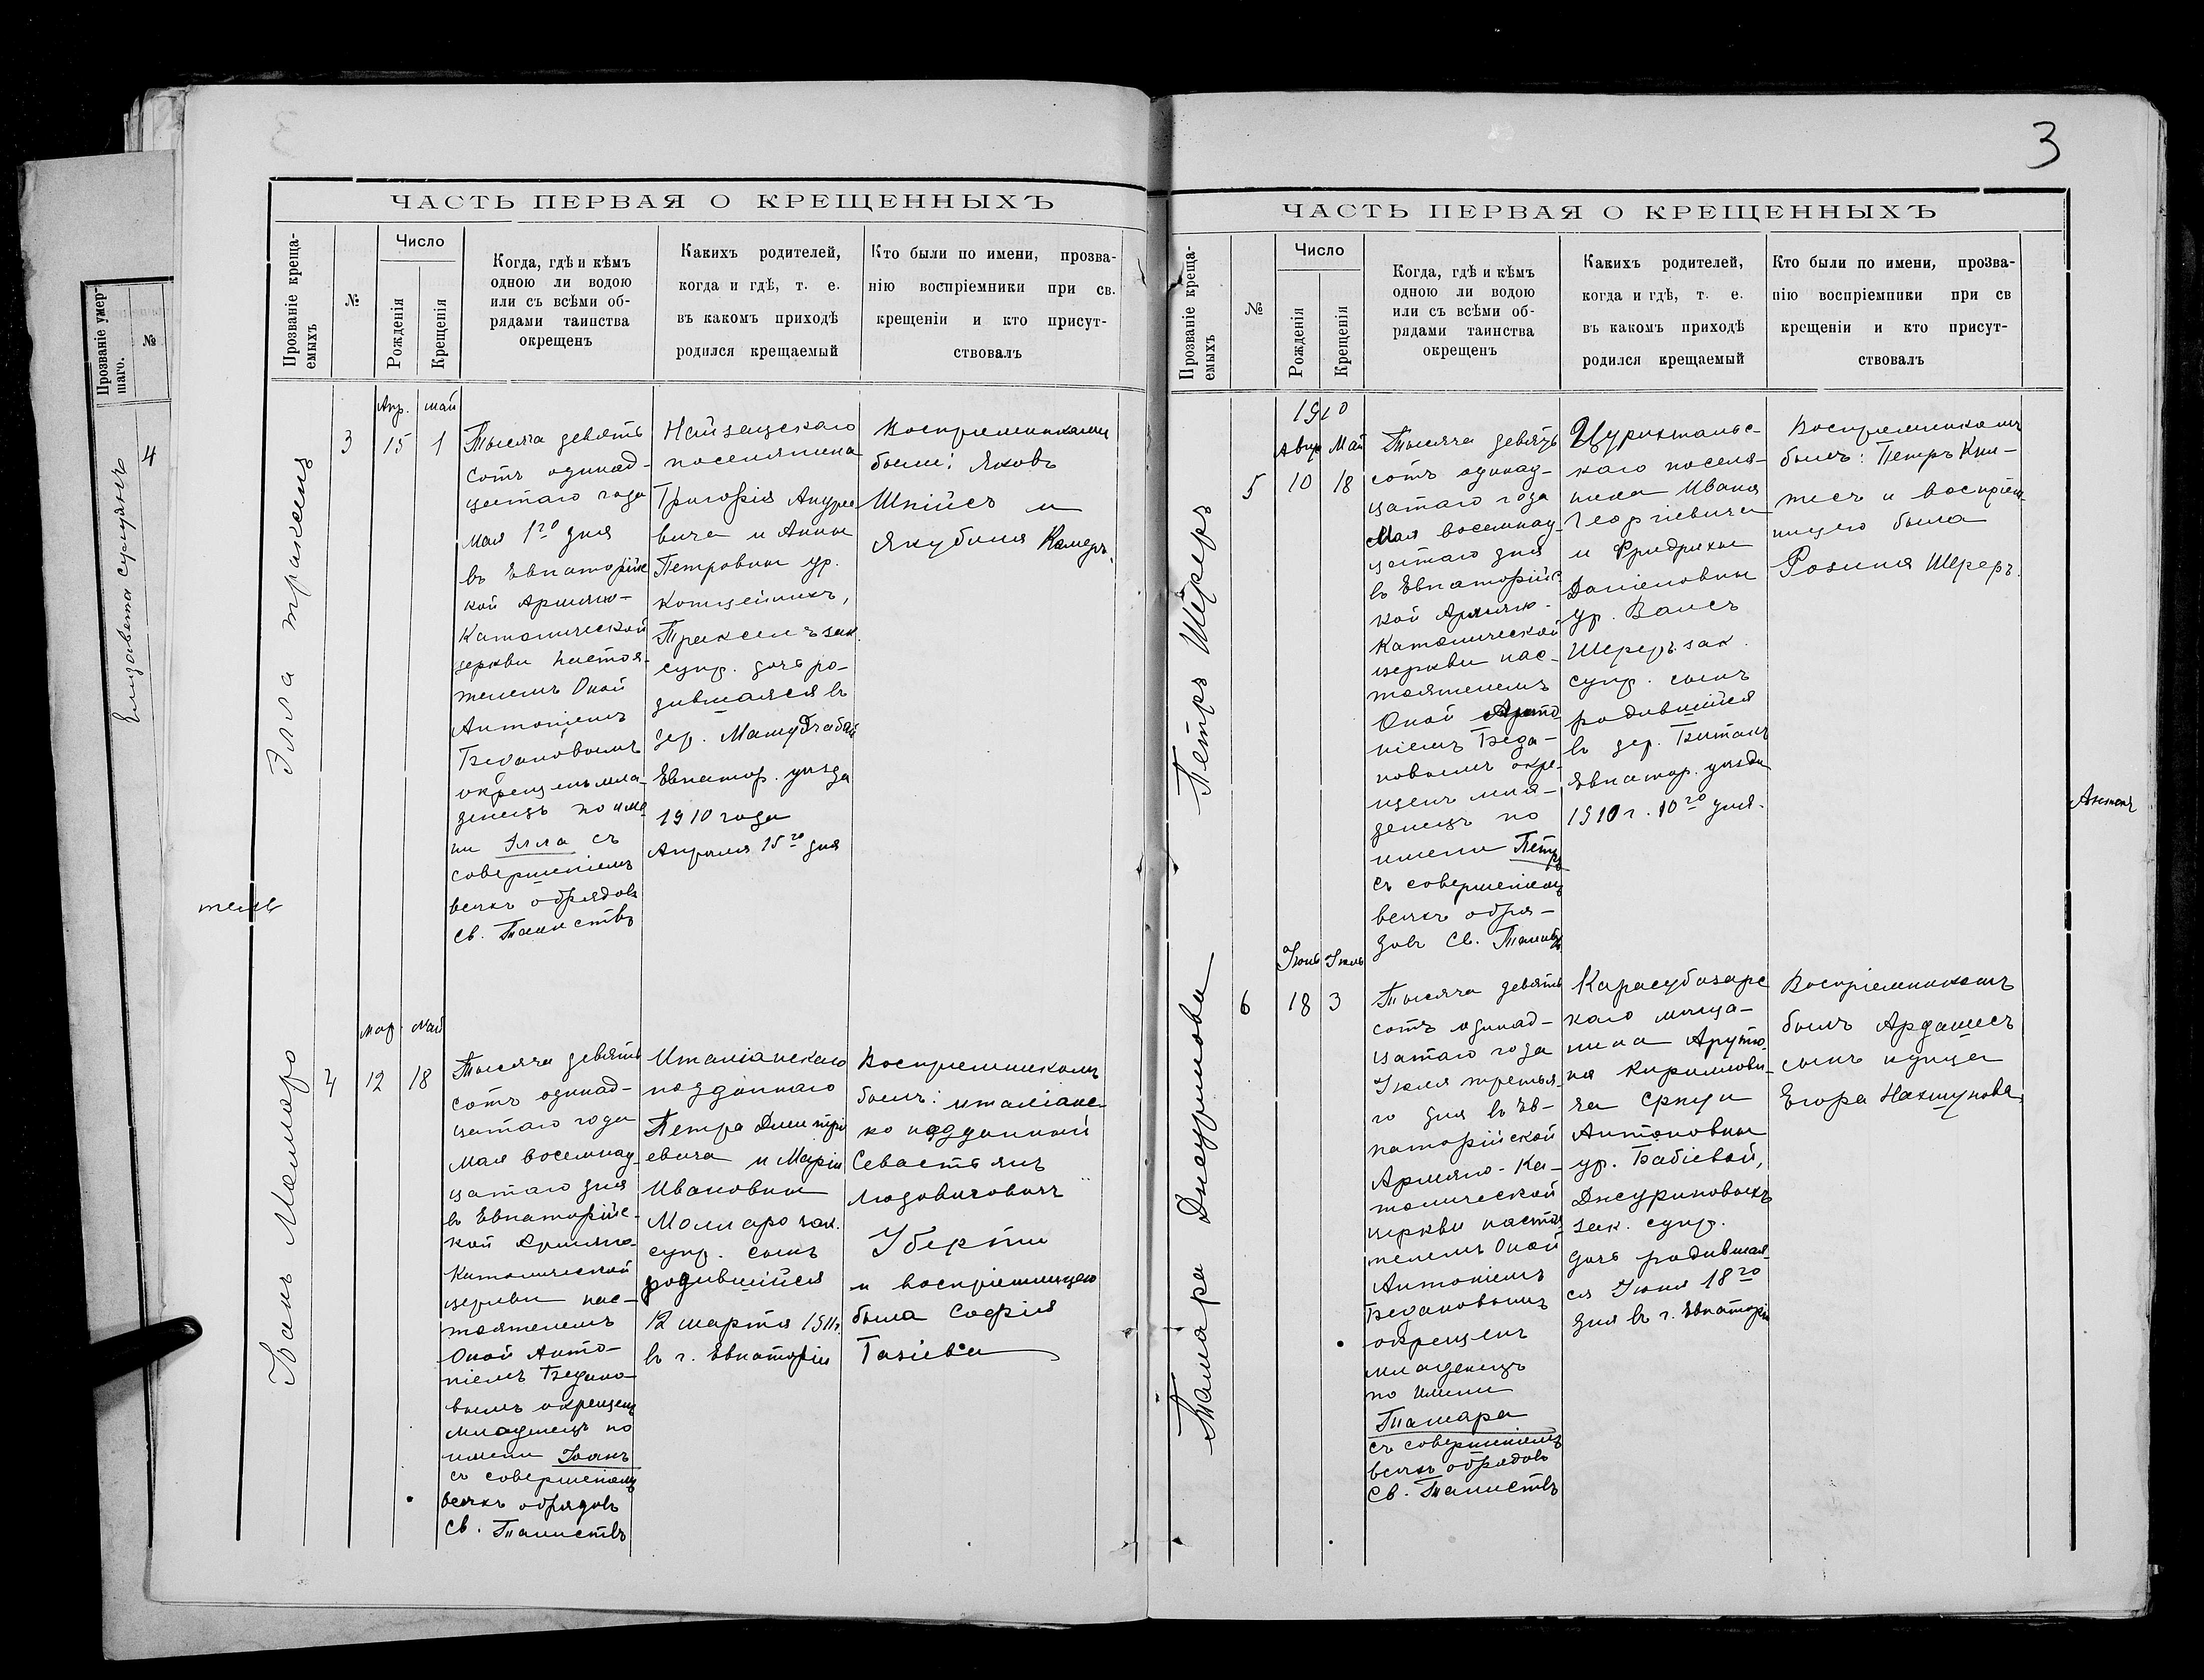 3
Прозваніе умер-
шаго.
№
4
Елизавета
ЧАСТЬ ПЕРВАЯ О КРЕЩЕННЫХЪ
Прозваніе креща-
емыхъ
№
Число
Рожденія
Крещенія
Когда, гдѣ и кѣмъ
одною ли водою
или съ всѣми об-
рядами таинства
окрещенъ
Какихъ родителей,
когда и гдѣ, т. е.
въ какомъ приходѣ
родился крещаемый
Кто были по имени, прозва-
нію воспріемники при св.
крещеніи и кто присут-
ствовалъ
Элла Траксель
3
Апр. май
15 1
Тысяча девять
сотъ одинад-
цатаго года
мая 1го дня
въ Евпаторійс
кой Армяно-
Католической
церкви настоя-
телемъ Оной
Антоніемъ
Бедановымъ
окрещенъ мла-
денецъ по име
ни Элла съ
совершеніемъ
всѣхъ обрядовъ
св. Таинствъ
Найзацскаго
поселянина
Григорія Андрее
вича и Анны
Петровны ур.
Траксель зак.
супр. дочь ро-
дившаяся въ
дер.
Евпатор. уѣзда
1910 года
Апрѣля 15го дня
Воспріемниками
были: Яковъ
Шпійсъ и
Якубина Камеръ.
тель
Іоанъ Молларо
4
Мар. Май
12 18
Тысяча девять
сотъ одинад-
цатаго года
Мая восемнад-
цатаго дня
въ Евпаторійс-
кой Армяно-
Католической
церкви нас-
тоятелемъ
Оной Анто-
ніемъ Бедано-
вымъ окрещенъ
младенецъ по
имени Іоанъ
съ совершеніемъ
всѣхъ обрядовъ
св. Таинствъ
Италіанскаго
подданнаго
Петра Дмитрі
евича и Маріи
Ивановны
Молларо зак.
супр. сынъ
родившійся
12 марта 1911г.
въ г. Евпаторіи
Воспріемникомъ
былъ: италіанс-
ко подданный
Севастьянъ
Людовиговичъ
Уберти
и воспріемницею
была Софія
Газіева
ЧАСТЬ ПЕРВАЯ О КРЕЩЕННЫХЪ
Прозваніе креща-
емыхъ
№
Число
Рожденія
Крещенія
Когда, гдѣ и кѣмъ
одною ли водою
или съ всѣми об-
рядами таинства
окрещенъ
Какихъ родителей,
когда и гдѣ, т. е.
въ какомъ приходѣ
родился крещаемый
Кто были по имени, прозва-
нію воспріемники при св
крещеніи и кто присут-
ствовалъ
Петръ Шереръ
5
1910
Май
10 18
Тысяча девять
сотъ одинад-
цатаго года
Мая восемнад-
цатаго дня
въ Евпаторійс
кой Армяно-
Католической
церкви нас-
тоятелемъ
Оной Анто
ніемъ Беда-
новымъ окре-
щенъ мла-
денецъ по
имени Петръ
съ совершеніемъ
всѣхъ обря-
довъ св. Таинствъ
Цурихтальс-
каго поселя-
нина Ивана
Георгіевича
и Фридрихи
Даніеловны
ур. Валсъ
Шереръ зак.
супр. сынъ
родившійся
въ дер. Битакъ
Евпатор. уѣзда
1910 г. 10го дня.
Воспріемникомъ
былъ: Петръ Кни-
тесъ и воспріем-
ницею была
Розина Шереръ.
Антон
Тамара Джеуринова
6
Іюнь Іюль
18 3
Тысяча девять
сотъ одинад-
цатаго года
Іюля третья-
го дня въ Ев-
паторійской
Армяно-Ка-
толической
церкви настоя
телемъ Оной
Антоніемъ
Бедановымъ
окрещенъ
младенецъ
по имени
Тамара
съ совершеніемъ
всѣхъ обрядовъ
св. Таинствъ
Карасубазарс
каго мѣща-
нина Арутю
на Кирилови-
ча Српуи
Антоновны
ур. Бабіевой,
Джеуриновыхъ
зак. супр.
дочь родившая-
ся Іюня 18го
дня въ г. Евпаторіи
Воспріемникомъ
былъ Ардашесъ
сынъ купца
Егора Нахшунова.